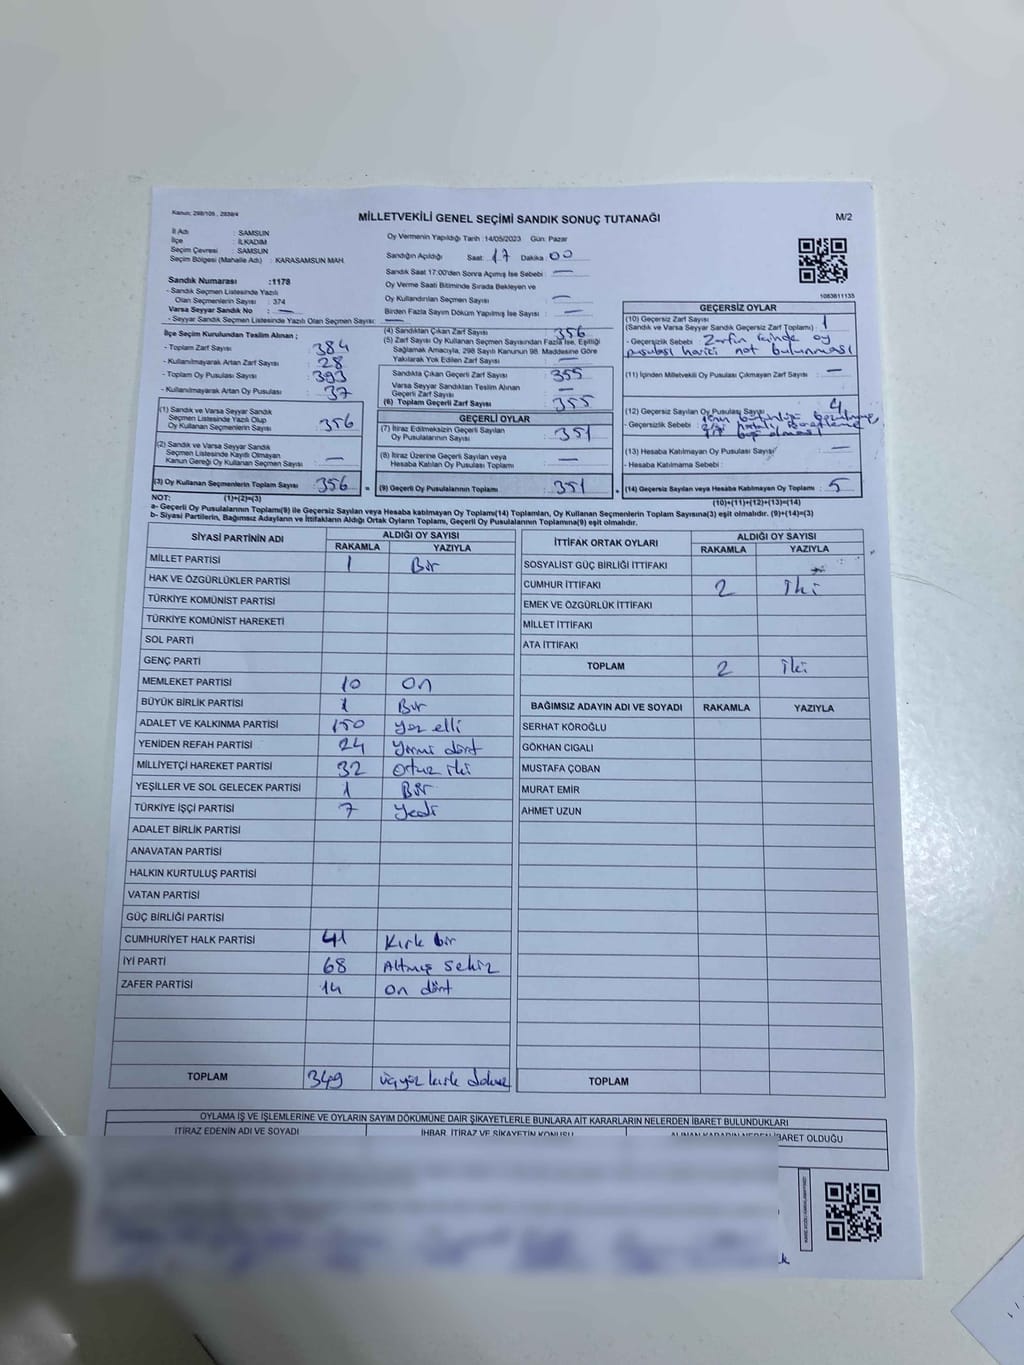 Kanun: 298/105 , 2839/4
MİLLETVEKİLİ GENEL SEÇİMİ SANDIK SONUÇ TUTANAĞI
M/2
İl Adı : SAMSUN
İlçe : İLKADIM
Seçim Çevresi : SAMSUN
Seçim Bölgesi (Mahalle Adı) : KARASAMSUN MAH.
Oy Vermenin Yapıldığı Tarih :14/05/2023 Gün: Pazar
Sandığın Açıldığı Saat : 17 Dakika : 00
Sandık Saat 17:00'den Sonra Açılmış İse Sebebi : —
Oy Verme Saati Bitiminde Sırada Bekleyen ve
Oy Kullandırılan Seçmen Sayısı : —
Birden Fazla Sayım Döküm Yapılmış İse Sayısı : —
1083811135
Sandık Numarası :1178
- Sandık Seçmen Listesinde Yazılı
Olan Seçmenlerin Sayısı : 374
Varsa Seyyar Sandık No : —
- Seyyar Sandık Seçmen Listesinde Yazılı Olan Seçmen Sayısı: —
İlçe Seçim Kurulundan Teslim Alınan ;
- Toplam Zarf Sayısı : 384
- Kullanılmayarak Artan Zarf Sayısı : 28
- Toplam Oy Pusulası Sayısı : 393
- Kullanılmayarak Artan Oy Pusulası : 37
(1) Sandık ve Varsa Seyyar Sandık
Seçmen Listesinde Yazılı Olup
Oy Kullanan Seçmen Sayısı : 356
(2) Sandık ve Varsa Seyyar Sandık
Seçmen Listesinde Kayıtlı Olmayan
Kanun Gereği Oy Kullanan Seçmen Sayısı : —
(3) Oy Kullanan Seçmenlerin Toplam Sayısı : 356 =
(4) Sandıktan Çıkan Zarf Sayısı : 356
(5) Zarf Sayısı Oy Kullanan Seçmen Sayısından Fazla İse, Eşitliği
Sağlamak Amacıyla, 298 Sayılı Kanunun 98. Maddesine Göre
Yakılarak Yok Edilen Zarf Sayısı : —
Sandıkta Çıkan Geçerli Zarf Sayısı : 355
Varsa Seyyar Sandıktan Teslim Alınan
Geçerli Zarf Sayısı : —
(6) Toplam Geçerli Zarf Sayısı : 355
GEÇERLİ OYLAR
(7) İtiraz Edilmeksizin Geçerli Sayılan
Oy Pusulalarının Sayısı : 351
(8) İtiraz Üzerine Geçerli Sayılan veya
Hesaba Katılan Oy Pusulası Toplamı : —
(9) Geçerli Oy Pusulalarının Toplamı : 351 +
GEÇERSİZ OYLAR
(10) Geçersiz Zarf Sayısı : 1
(Sandık ve Varsa Seyyar Sandık Geçersiz Zarf Toplamı)
- Geçersizlik Sebebi : Zarfın içinde oy
pusulası harici not bulunması
(11) İçinden Milletvekili Oy Pusulası Çıkmayan Zarf Sayısı : —
(12) Geçersiz Sayılan Oy Pusulası Sayısı : 4
- Geçersizlik Sebebi :
(13) Hesaba Katılmayan Oy Pusulası Sayısı : —
- Hesaba Katılmama Sebebi :
(14) Geçersiz Sayılan veya Hesaba Katılmayan Oy Toplamı : 5
NOT: (1)+(2)=(3)
(10)+(11)+(12)+(13)=(14)
a- Geçerli Oy Pusulalarının Toplamı(9) ile Geçersiz Sayılan veya Hesaba katılmayan Oy Toplamı(14) Toplamları, Oy Kullanan Seçmenlerin Toplam Sayısına(3) eşit olmalıdır. (9)+(14)=(3)
b- Siyasi Partilerin, Bağımsız Adayların ve İttifakların Aldığı Ortak Oyların Toplamı, Geçerli Oy Pusulalarının Toplamına(9) eşit olmalıdır.
SİYASİ PARTİNİN ADI ALDIĞI OY SAYISI
RAKAMLA YAZIYLA
MİLLET PARTİSİ 1 Bir
HAK VE ÖZGÜRLÜKLER PARTİSİ
TÜRKİYE KOMÜNİST PARTİSİ
TÜRKİYE KOMÜNİST HAREKETİ
SOL PARTİ
GENÇ PARTİ
MEMLEKET PARTİSİ 10 On
BÜYÜK BİRLİK PARTİSİ 1 Bir
ADALET VE KALKINMA PARTİSİ 150 yüz elli
YENİDEN REFAH PARTİSİ 24 Yirmi dört
MİLLİYETÇİ HAREKET PARTİSİ 32 Otuz iki
YEŞİLLER VE SOL GELECEK PARTİSİ 1 Bir
TÜRKİYE İŞÇİ PARTİSİ 7 Yedi
ADALET BİRLİK PARTİSİ
ANAVATAN PARTİSİ
HALKIN KURTULUŞ PARTİSİ
VATAN PARTİSİ
GÜÇ BİRLİĞİ PARTİSİ
CUMHURİYET HALK PARTİSİ 41 Kırk bir
İYİ PARTİ 68 Altmış sekiz
ZAFER PARTİSİ 14 On dört
TOPLAM 349 üçyüz kırk dokuz
İTTİFAK ORTAK OYLARI ALDIĞI OY SAYISI
RAKAMLA YAZIYLA
SOSYALİST GÜÇ BİRLİĞİ İTTİFAKI
CUMHUR İTTİFAKI 2 İki
EMEK VE ÖZGÜRLÜK İTTİFAKI
MİLLET İTTİFAKI
ATA İTTİFAKI
TOPLAM 2 İki
BAĞIMSIZ ADAYIN ADI VE SOYADI RAKAMLA YAZIYLA
SERHAT KÖROĞLU
GÖKHAN CIGALI
MUSTAFA ÇOBAN
MURAT EMİR
AHMET UZUN
TOPLAM
OYLAMA İŞ VE İŞLEMLERİNE VE OYLARIN SAYIM DÖKÜMÜNE DAİR ŞİKAYETLERLE BUNLARA AİT KARARLARIN NELERDEN İBARET BULUNDUKLARI
İTİRAZ EDENİN ADI VE SOYADI İHBAR, İTİRAZ VE ŞİKAYETİN KONUSU ALINAN KARARIN NEDEN İBARET OLDUĞU